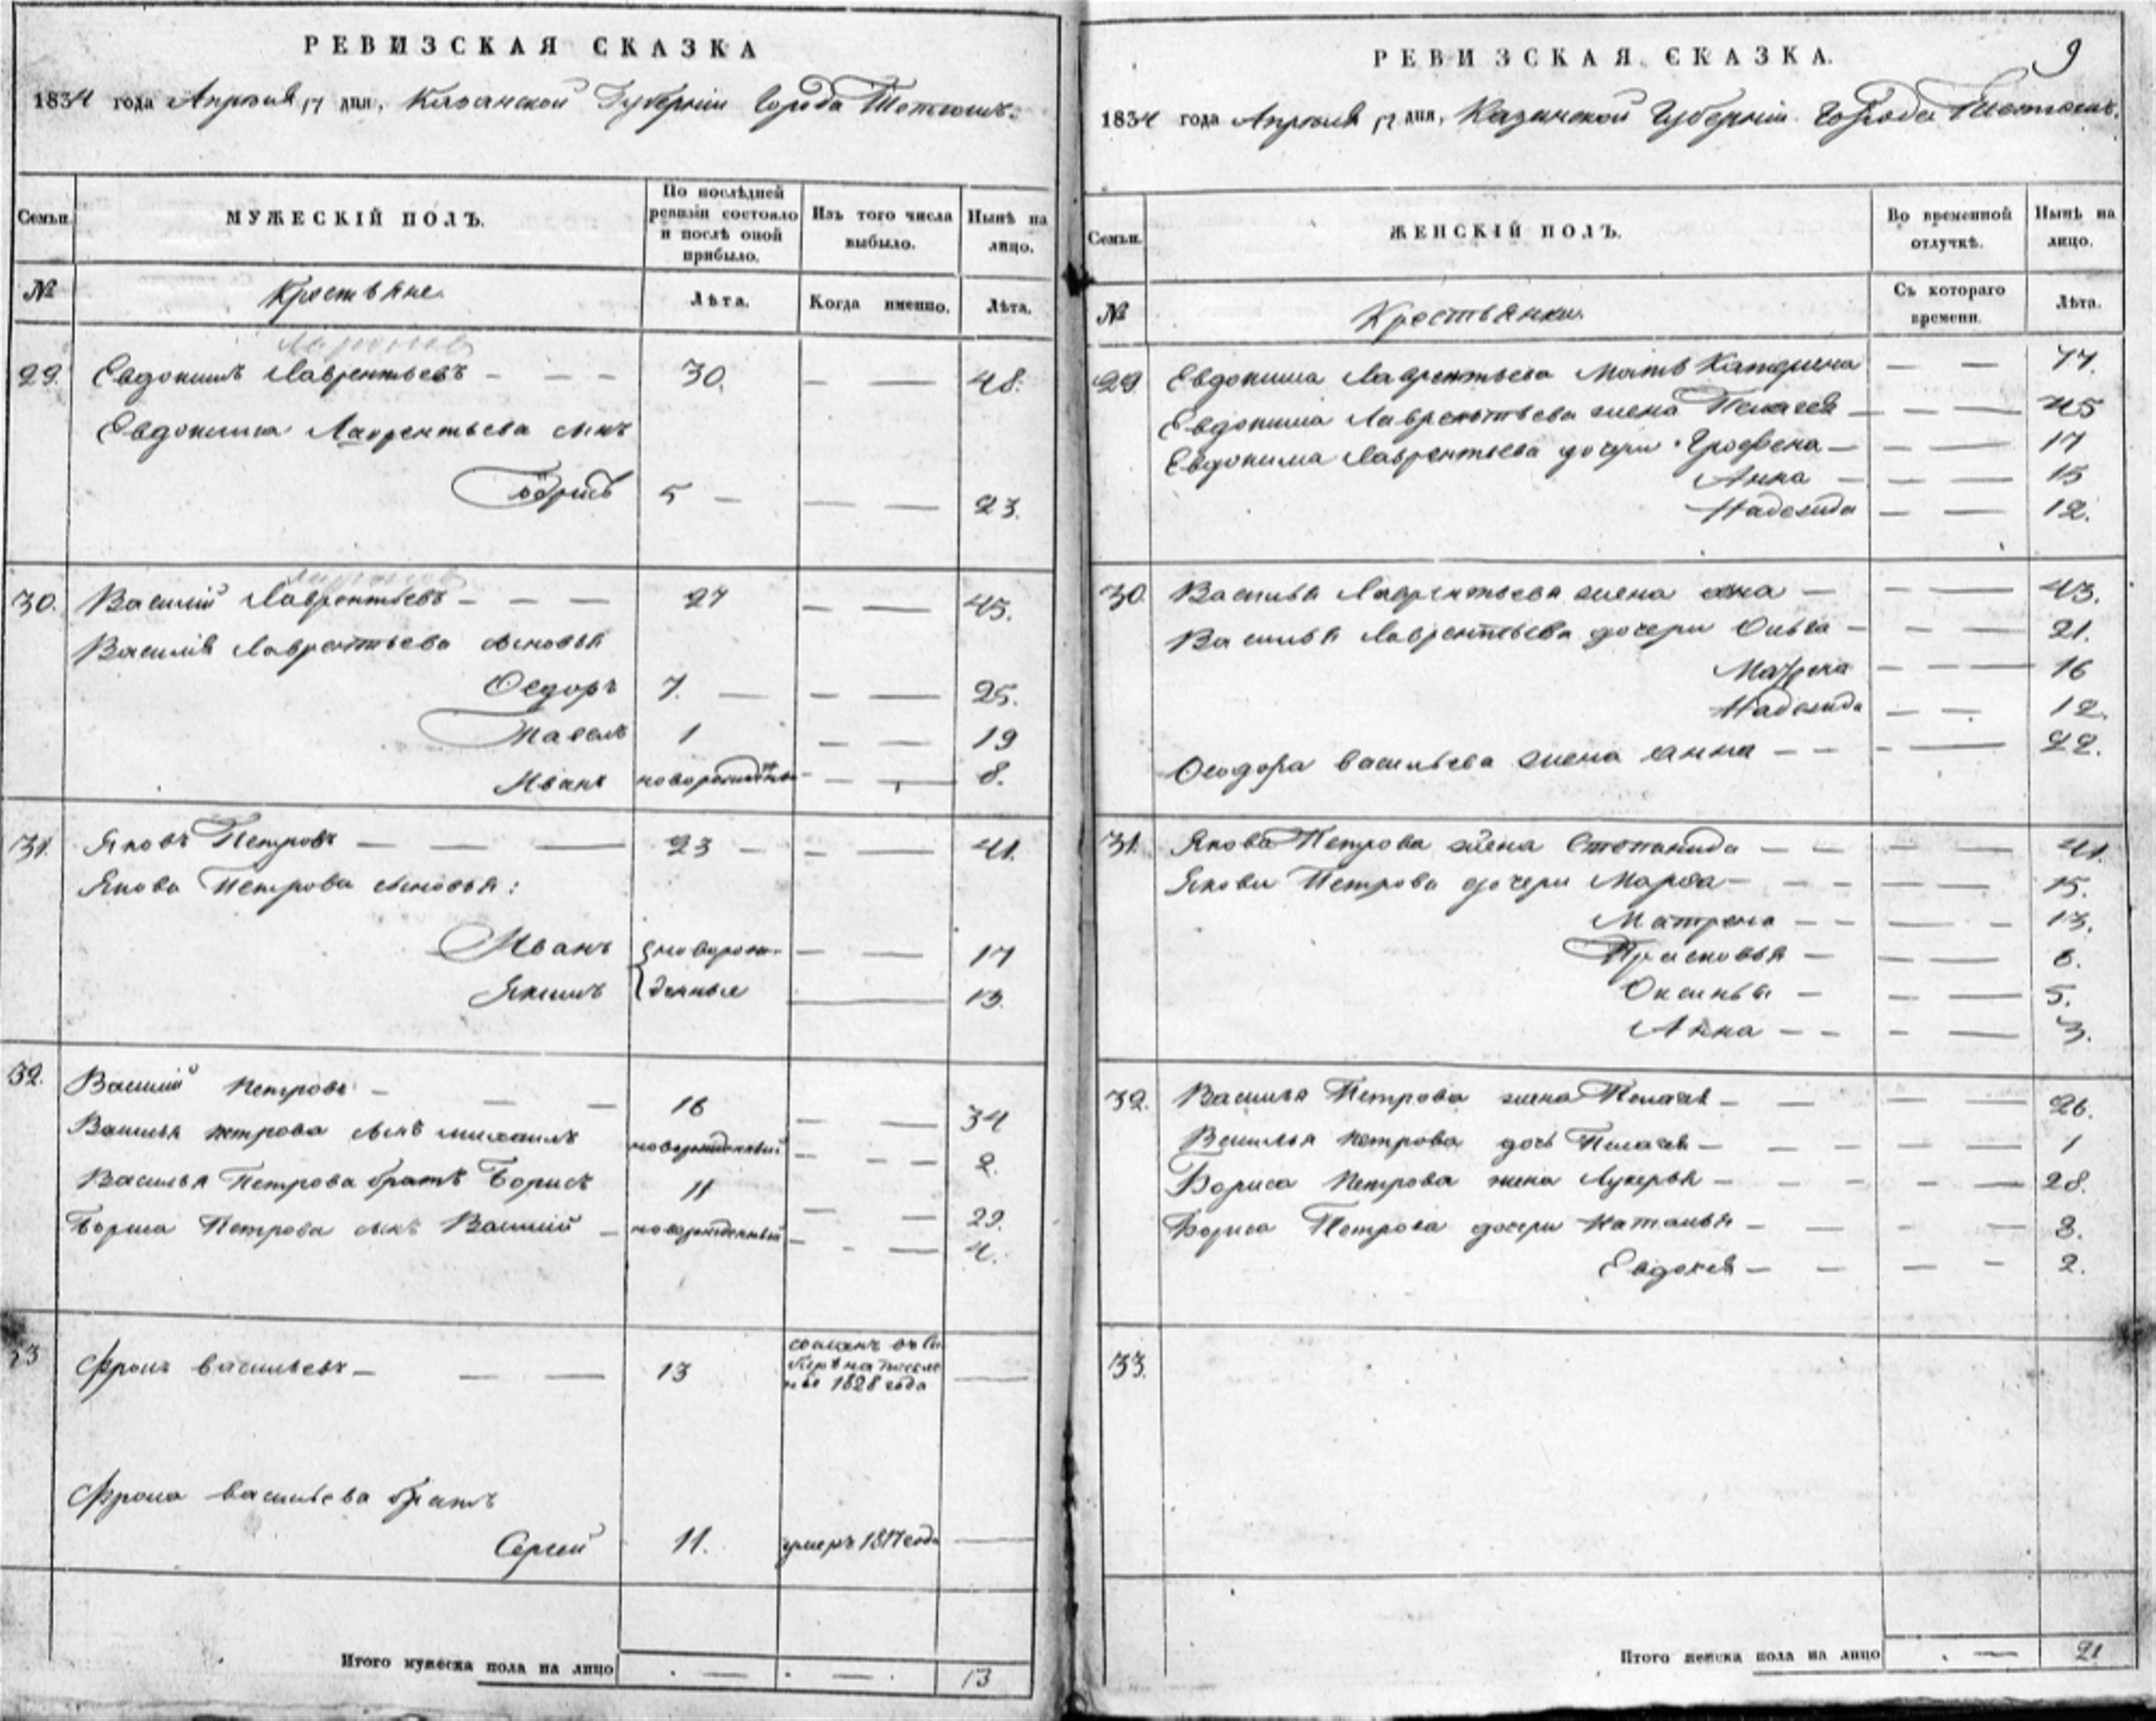 РЕВИЗСКАЯ СКАЗКА
1834 года Апреля 17 дня, Казанской Губернии Города Тетюшъ.
Семьи. МУЖЕСКІЙ ПОЛЪ. По послѣдней ревизіи состояло и послѣ оной прибыло. Изъ того числа выбыло. Нынѣ на лицо.
№ Крестьяне. Лѣта. Когда именно. Лѣта.
29. Евдокимъ Лаврентьевъ — — — 30. — — 48.
Евдокима Лаврентьева сынъ
Борисъ 5 — — — 23.
30. Василій Лаврентьевъ — — — 27 — — 45.
Василія Лаврентьева сыновья
Ѳедоръ 7. — — — 25.
Павелъ 1 — — 19
Иванъ новорожденны — — 8.
31. Яковъ Петровъ — — — 23 — — — 41.
Якова Петрова сыновья:
Иванъ новорож- — — 17
Якимъ денные — 13.
32. Василій Петровъ — — — 16 — — 34
Василья петрова сынъ михаилъ новорожденный — — — 2.
Василья Петрова братъ Борисъ 11 — — 29.
Бориса Петрова сынъ Василій — новорожденный — - — 4.
33 Фролъ васильевъ — — — 13 сосланъ въ Си
бирь на поселе
нье 1828 года —
Фрола васильева братъ
Сергей 11. умеръ 1817 года —
Итого мужеска пола на лицо . — . — . 13
9
РЕВИЗСКАЯ СКАЗКА.
1834 года Апреля 17 дня, Казанской Губерніи Города Тетюшъ.
Семьи. ЖЕНСКІЙ ПОЛЪ. Во временной отлучкѣ. Нынѣ на лицо.
№ Крестьянки. Съ котораго времени. Лѣта.
29 Евдокима Лаврентьева мать Катерина — — 77.
Евдокима Лаврентьева жена Пелагея — — — 45
Евдокима Лаврентьева дочери Грофена — — — 17
Анна — — — 15
Надежда — — 12.
30. Василья Лаврентьева жена — — — 43.
Василья Лаврентьева дочери Ольга — — — 21.
Матрена — — — 16
Надежда — — 12.
Ѳеодора васильева жена анна — — - — 22.
31. Якова Петрова жена Степанида — — — — 41.
Якова Петрова дочери Марѳа — — — — — 15.
Матрена — — — — - 13.
Прасковья — — — 6.
Оксинья — — — 5.
Анна — — - — 3.
32. Василья Петрова жена Пелагея — — — — 26.
Василья петрова дочь Пелагея — — — — — 1
Бориса Петрова жена Лукерья — — — — — 28.
Бориса Петрова дочери Наталья — — — — — 8.
Евдокея — — — - 2.
33.
Итого женска пола на лицо . — 21